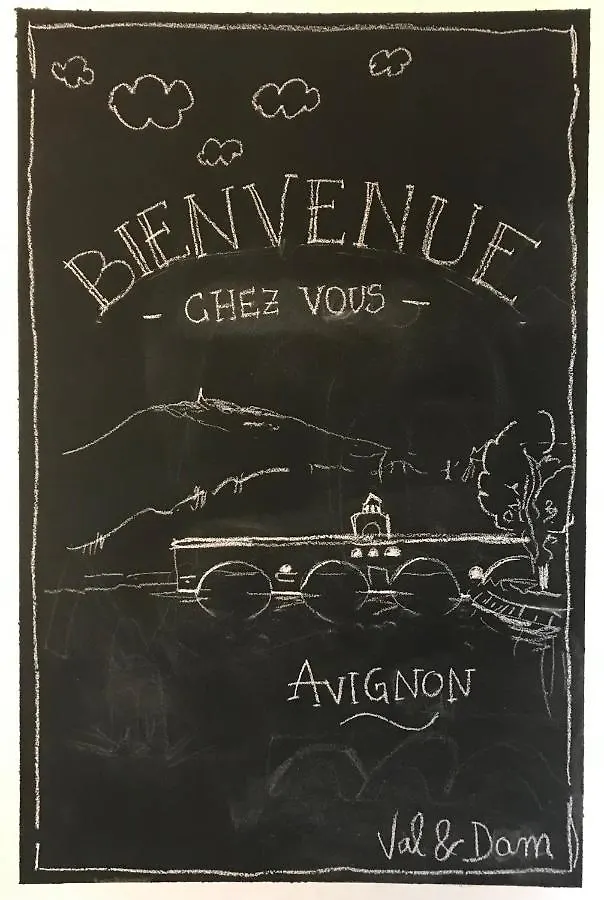 BIENVENUE
- CHEZ VOUS -
AVIGNON
Val & Dam